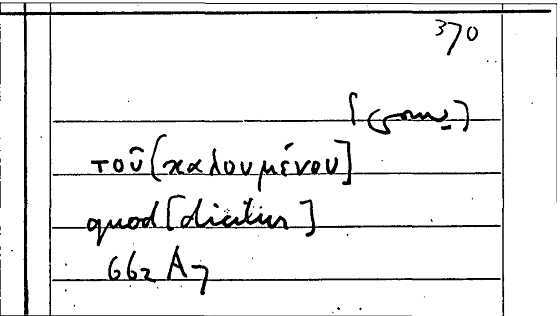 370
τοῦ [καλουμένου]
quod [dicitur]
662 A7